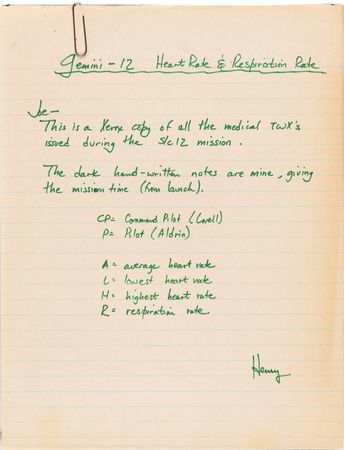 Gemini - 12 Heart Rate & Respiration Rate
Joe-
This is a Xerox copy of all the medical TWX's
issued during the S/C 12 mission.
The dark hand-written notes are mine, giving
the mission time (from launch).
CP = Command Pilot (Lovell)
P = Pilot (Aldrin)
A = average heart rate
L = lowest heart rate
H = highest heart rate
R = respiration rate.
Henry